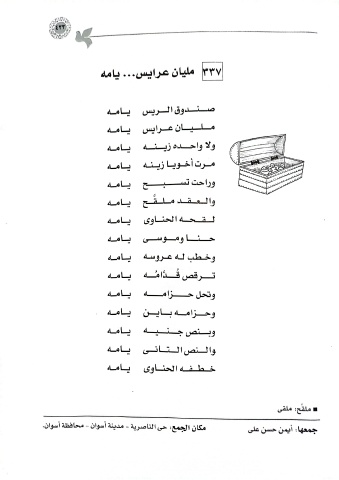 ٤٢٢
٣٣٧ مليان عرايس... يامه
صندوق الريس يامه
مليان عرايس يامه
ولا واحده زينه يامه
مرت أخويا زينه يامه
وراحت تسبح يامه
والمقد ملقّح يامه
لقحه الحناوى يامه
حنا وموسى يامه
وخطب له عروسه يامه
ترقص قُدَّامُه يامه
وتحل حزامه يامه
وحزامه باين يامه
وبنص جنيه يامه
والنص التانى يامه
خطفه الحناوى يامه
■ ملقَّح: ملقى
جمعها: أيمن حسن على
مكان الجمع: حى الناصرية - مدينة أسوان - محافظة أسوان.